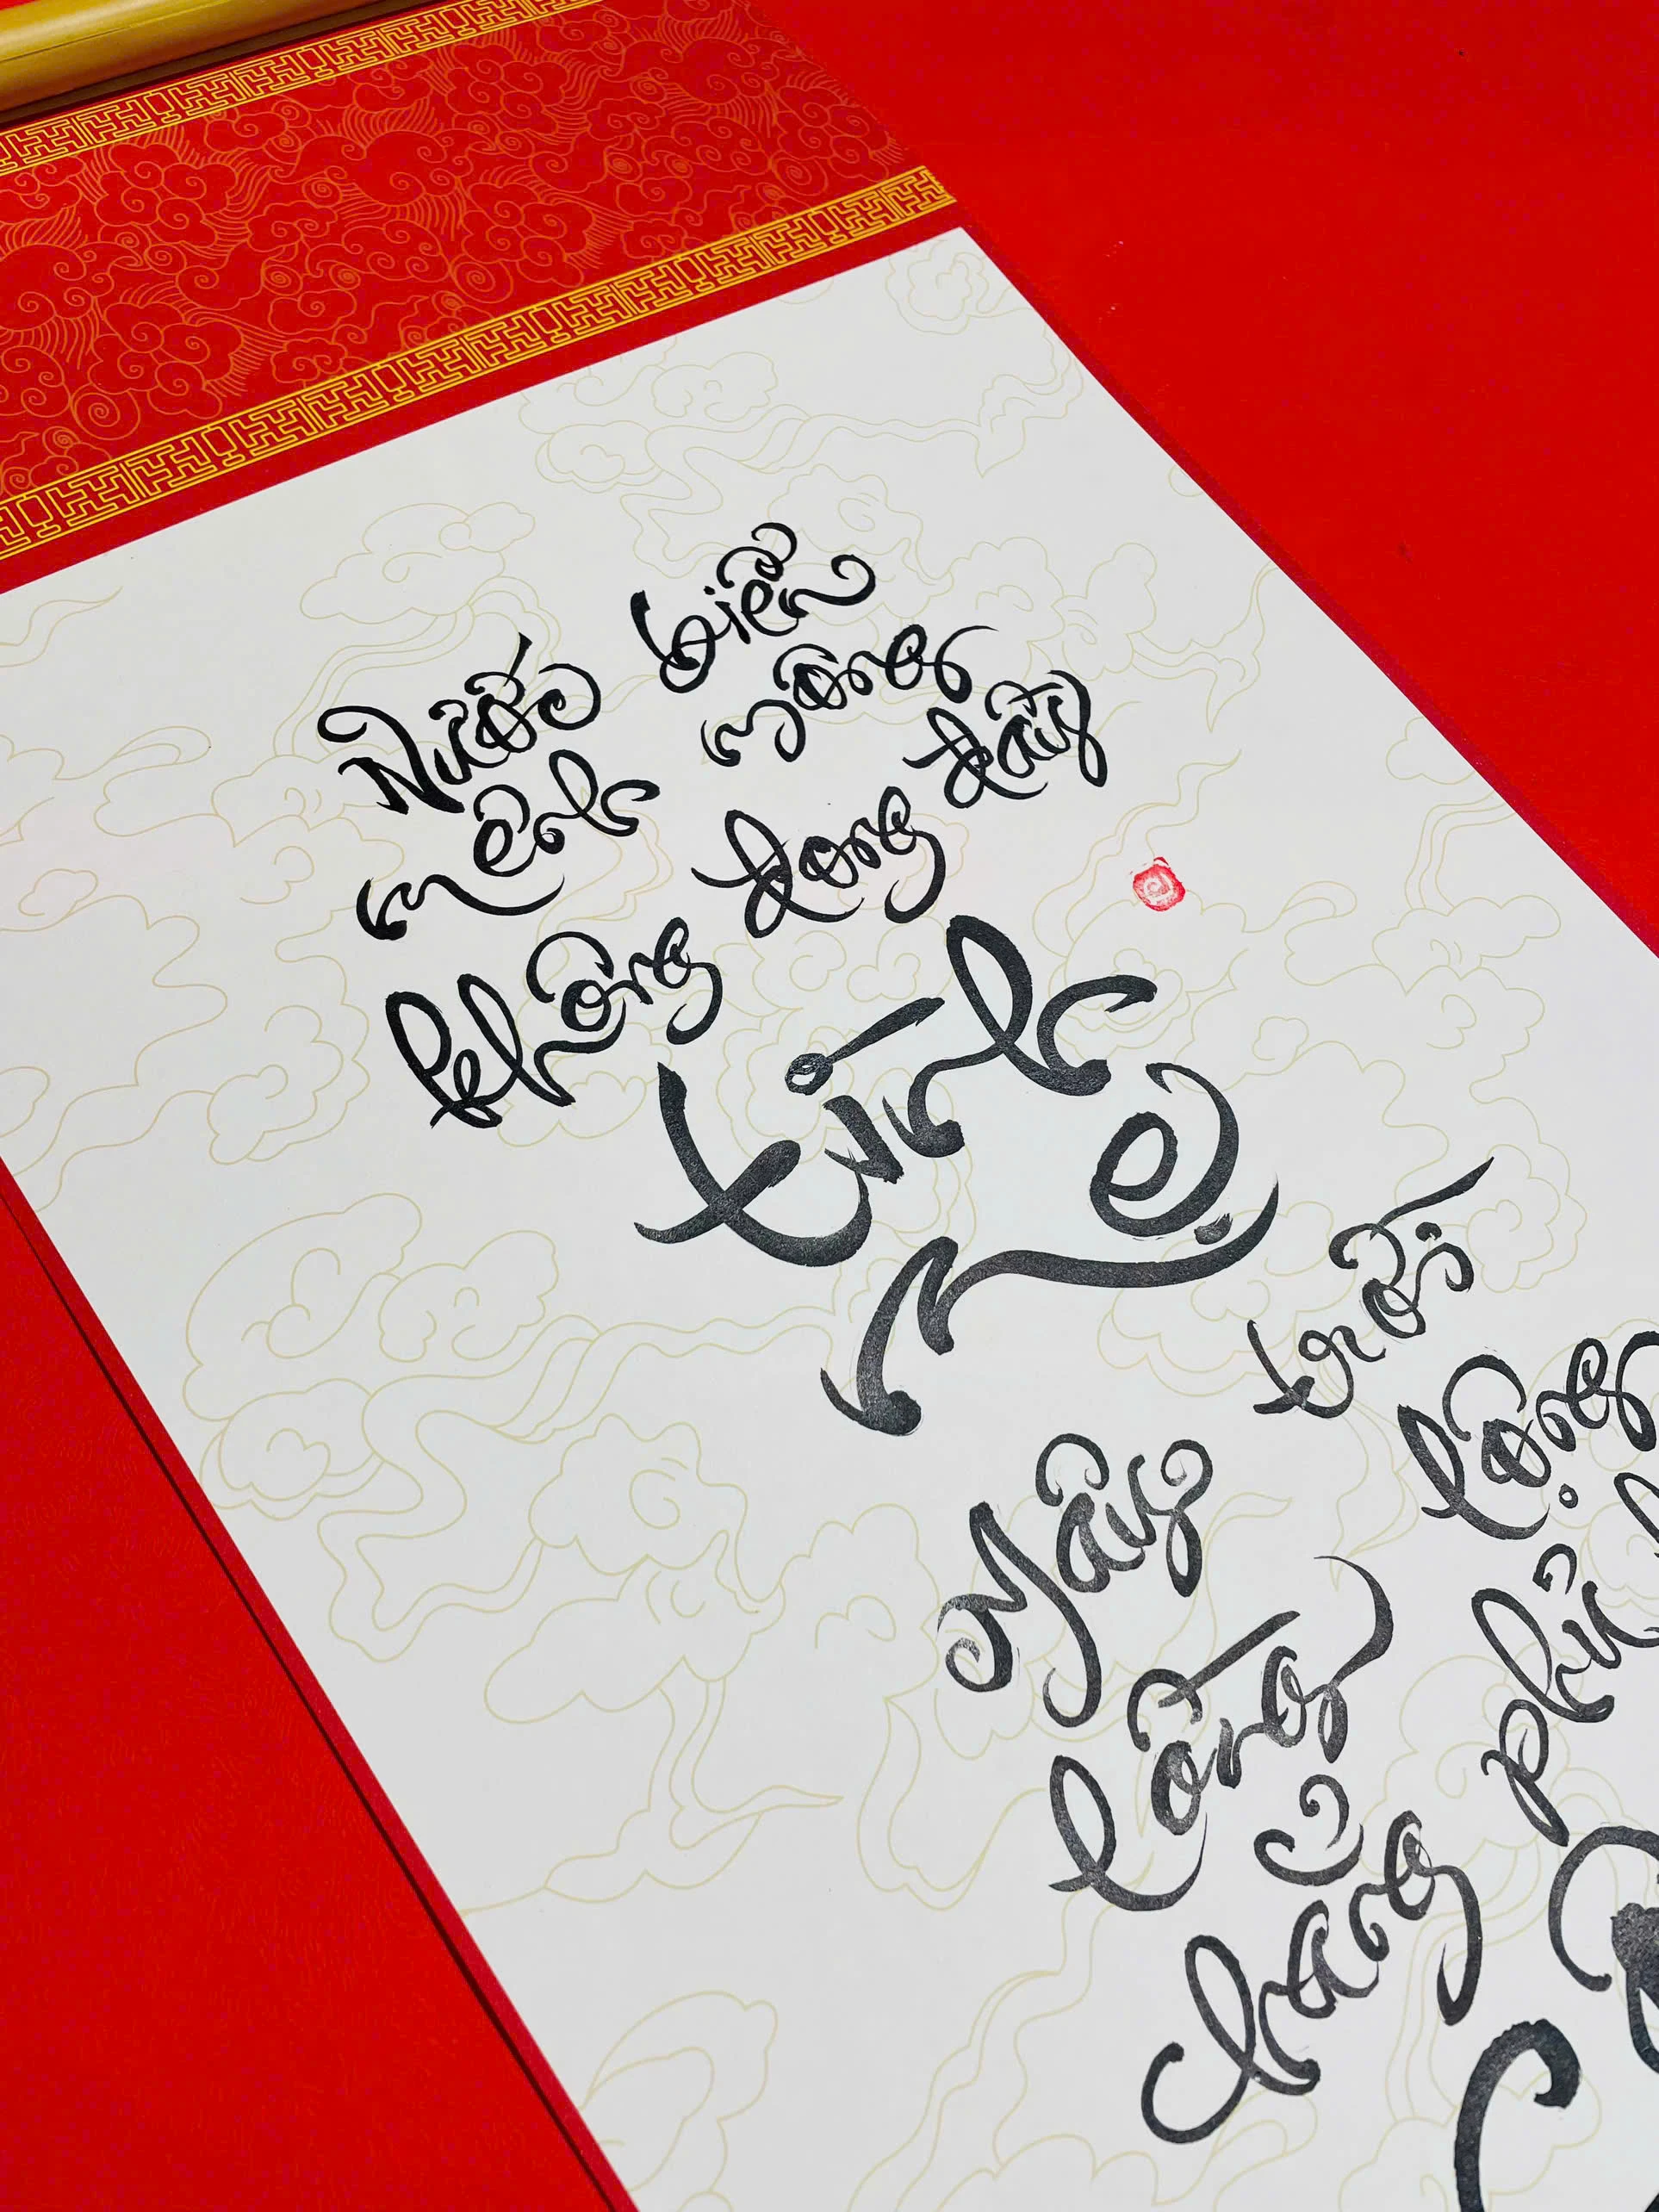 Nước biển
mênh mông
không đong đầy
tình
mẹ
Mây trời
lồng lộng
chẳng phủ